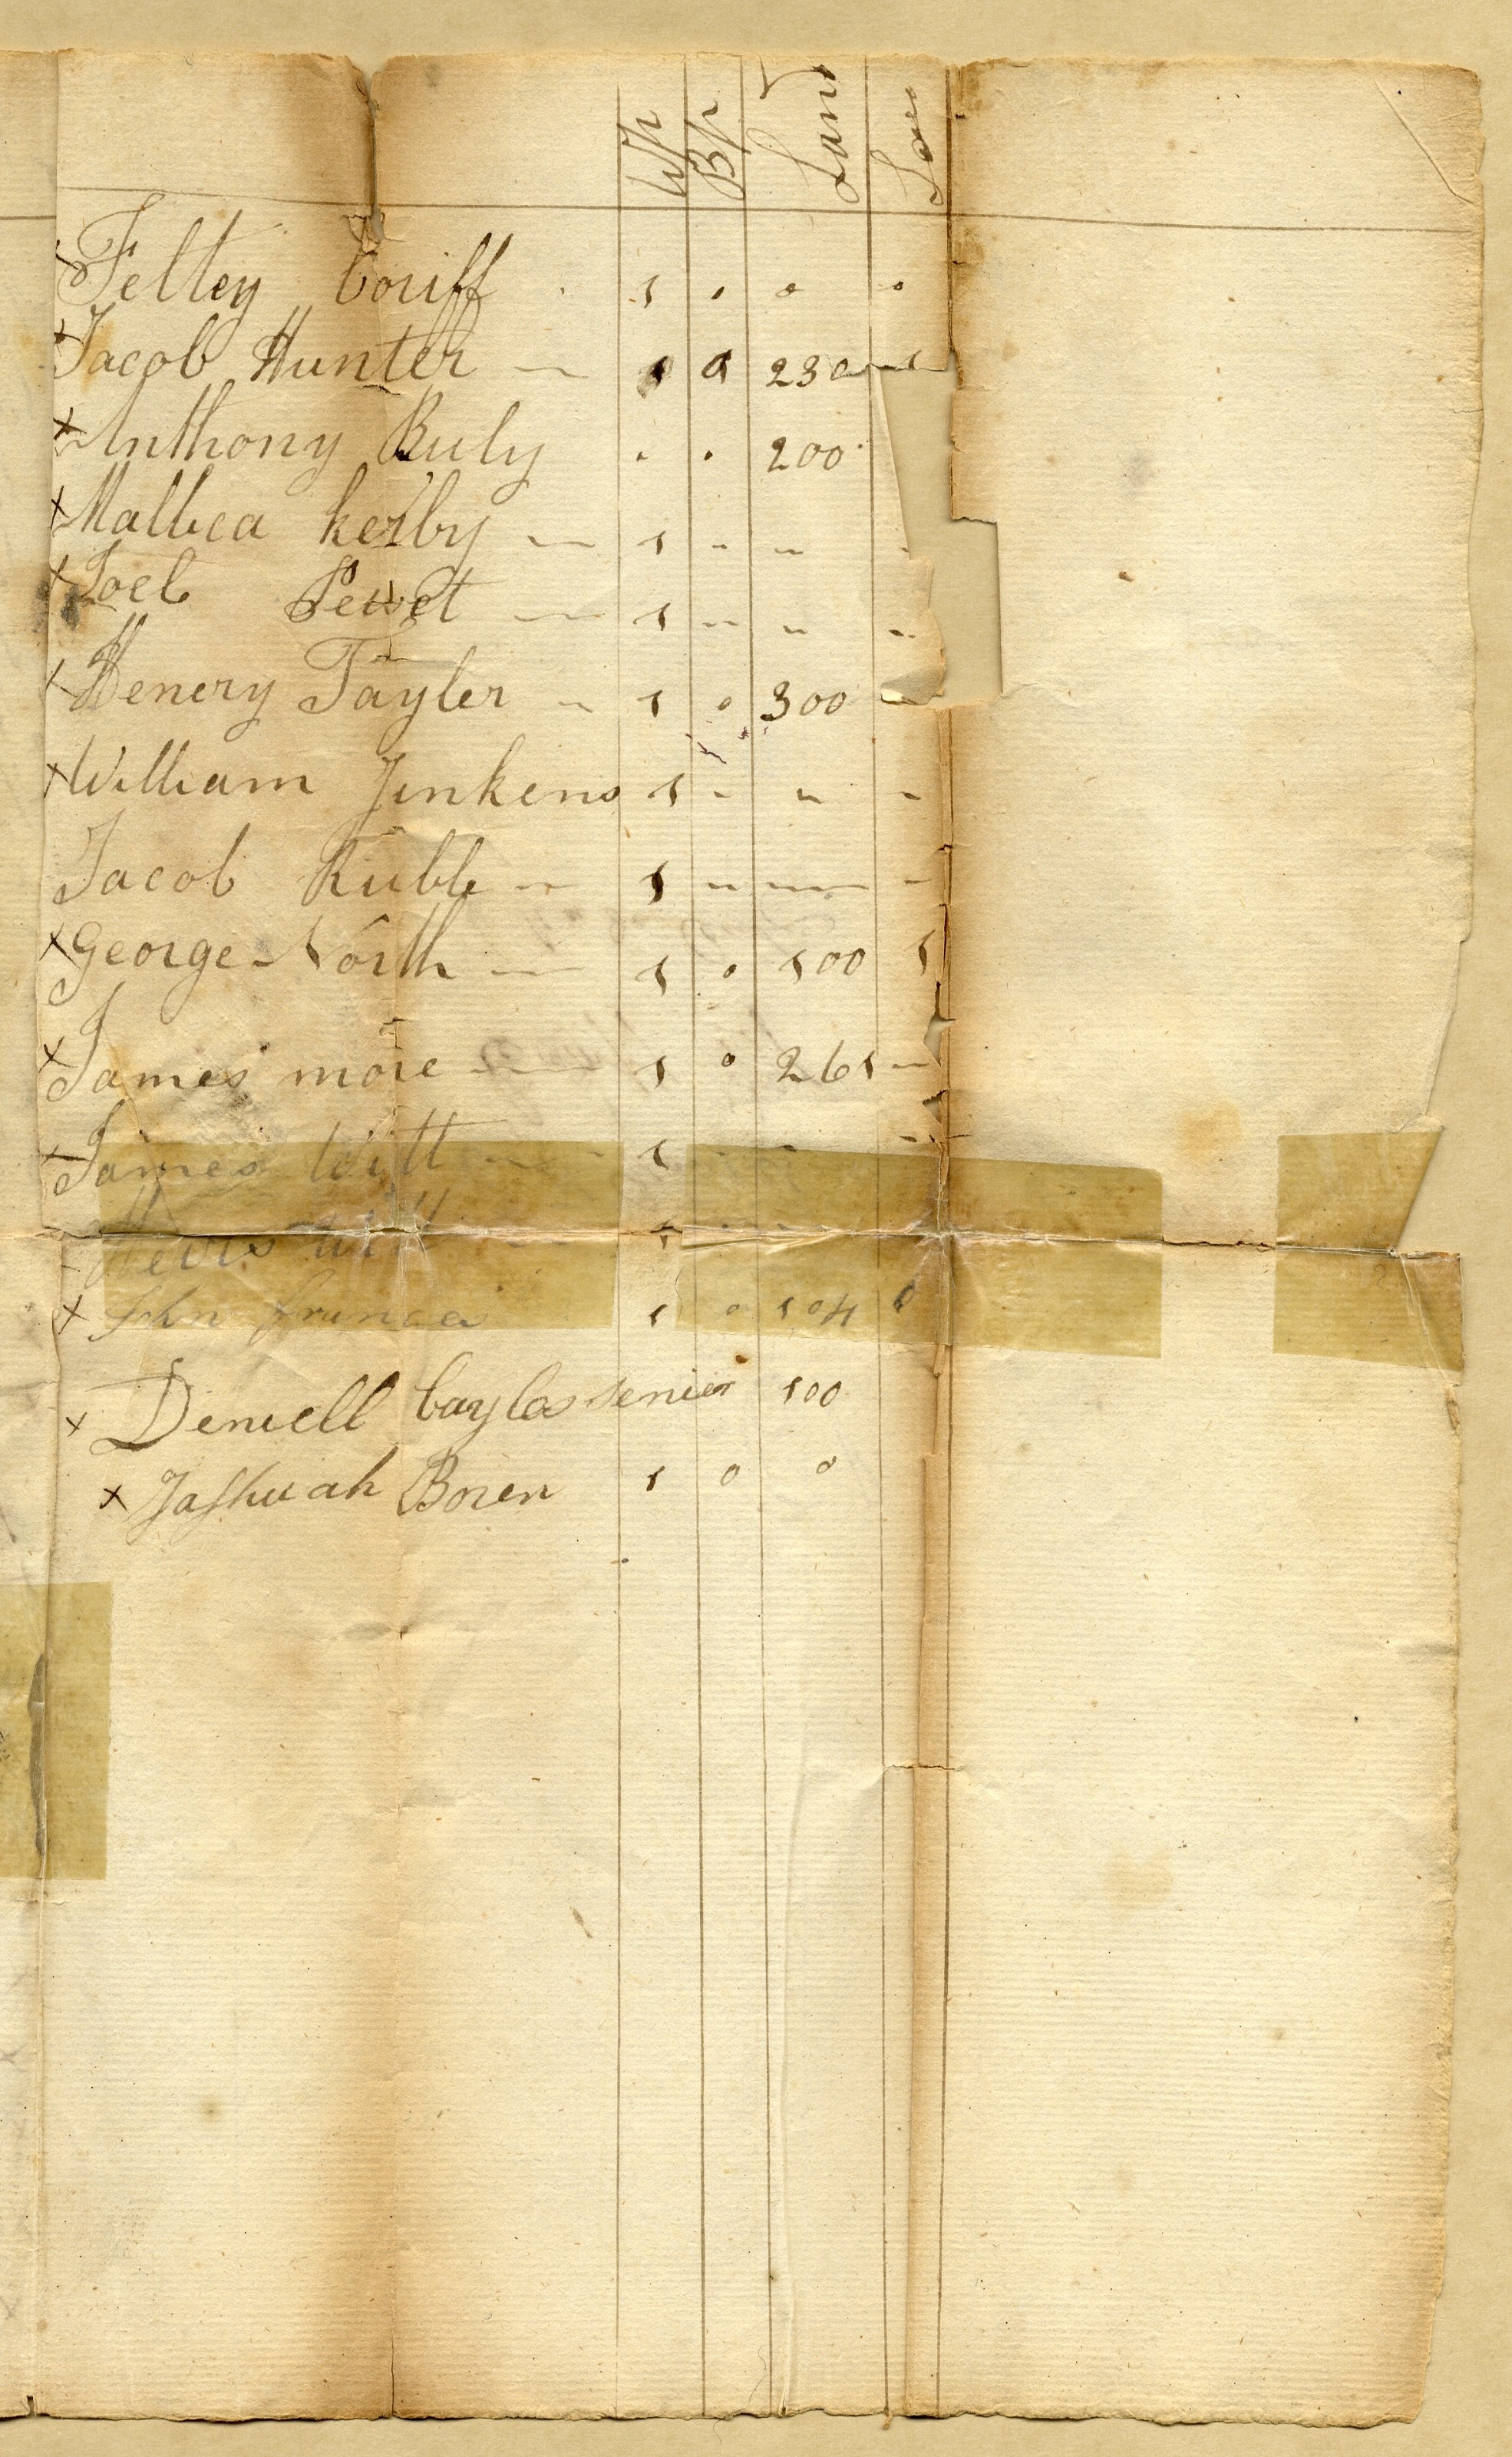 Wp Bp Land
x Feltey Coriff 1 . o o
x Jacob Hunter — 1 0 230 — 1
x Anthony Ruly . . 200
x Mallica Kerby — 1 - - -
x Joel — 1 - - -
x Henery Tayler - 1 o 300 -
x William Jinkens 1 - - -
Jacob Kuble - 1 - - -
x George North — 1 o 100 1
x James more — 1 o 261 —
x James Witt - - 1 - - -
Witt 1 - -
x John francis 1 o 104 0
x Deniell Bayles senier 100
x Jashuah Boren 1 0 o